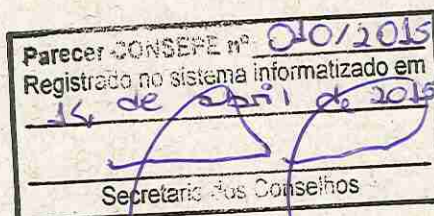 Parecer CONSEPE nº 010/2015
Registrado no sistema informatizado em
14 de abril de 2015
Secretaria dos Conselhos